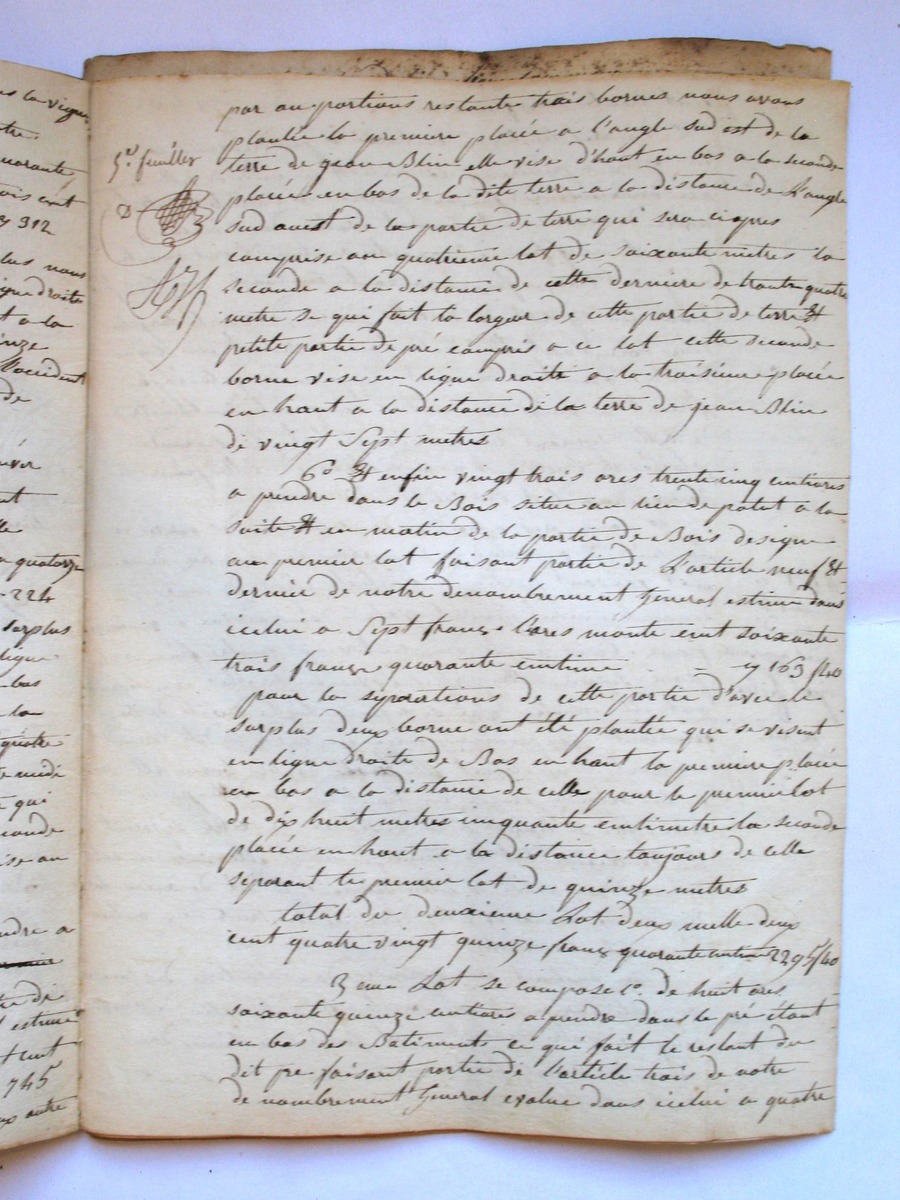 ns la vigne
tre
uarante
ois cent
y 312
lus nous
igne droite
t a la
inze
l'occident
de
uver
nt
lle
a quatorze
- 224
surplus
ligne
bas
la
quatre
te midi
e qui
conde
ise au
ndre a
tie de
t estimé
t cent
745
ux autre
5.e feuillet
par au portions restante trois bornes nous avons
plantée la premiere placée a l'angle sud est de la
terre de jean Blin elle vise d'haut en bas a la seconde
placée en bas de la dite terre a la distance de L'angle
sud ouest de la partie de terre qui sera ci apres
comprise au quatrieme lot de soixante metres la
seconde a la distance de cette derniere de trante quatre
metre se qui fait la largeur de cette partie de terre Et
petite partie de pré compris a ce lot cette seconde
borne vise en ligne droite a la troisieme placée
en haut a la distance de la terre de jean Blin
de vingt Sept metres
6.o Et enfin vingt trois ares trente cinq centiares
a prendre dans le Bois situe au lieu de patot a la
suite Et en matin de la partie de Bois designe
au premier lot faisant partie de L'article neuf Et
dernier de notre denombrement General estime dans
icelui a Sept franz l'ares monte cent soixante
trois franz quarante centime - y 163 f 40
pour la separations de cette partie d'avec le
surplus deux borne ont été plantée qui se visent
en ligne droite de Bas en haut la premiere placée
en bas a la distance de celle pour le premier lot
de dix huit metres cinquante centimetre la seconde
placée en haut a la distance toujours de celle
separant le premier lot de quinze metres
total du deuxieme Lot deux mille deux
cent quatre vingt quinze franz quarante centime 2295 f 40
3 eme Lot se compose 1.o de huit ares
soixante quinze centiares a prendre dans le pré étant
en bas des Batiments ce qui fait le restant du
dit pre faisant partie de l'article trois de notre
de nombrement General evalue dans icelui a quatre